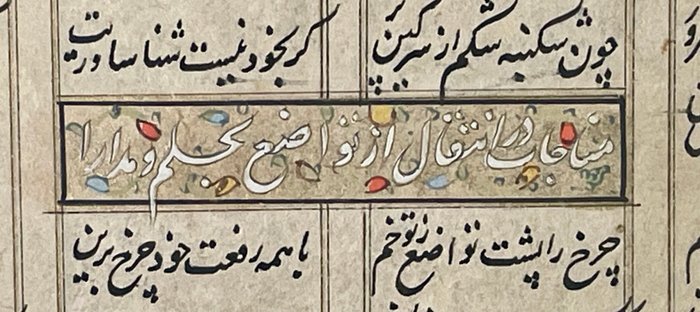 چون شکنبه شکم از سرکین کر بخود نیست شناساوریت
مناجات در انتقال از تواضع بحلم و مدارا
چرخ را پشت تواضع ز تو خم با همه رفعت خود چرخ برین